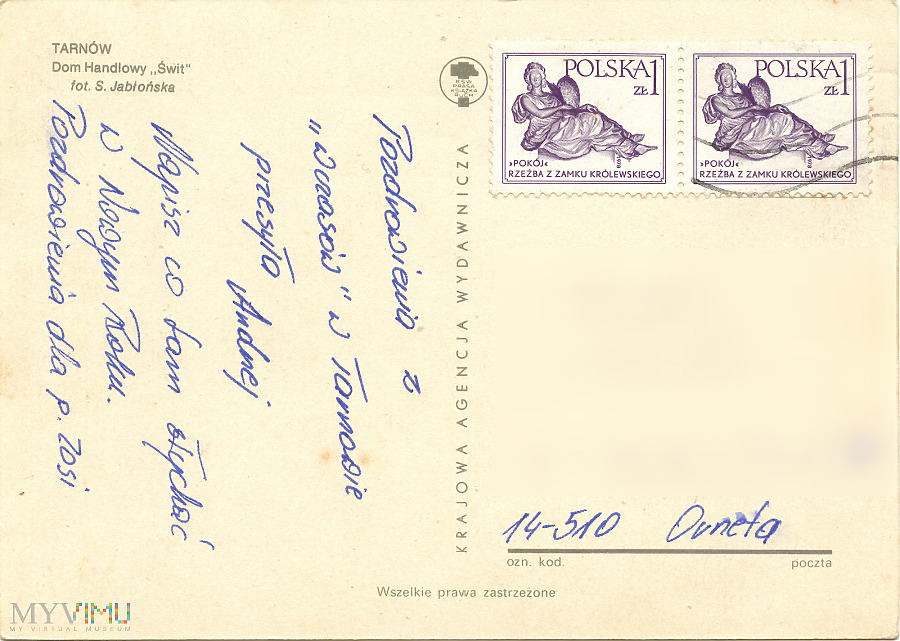 TARNÓW
Dom Handlowy „Świt"
fot. S. Jabłońska
Pozdrowienia z
"wczasów" w Tarnowie
przesyła Andrzej
Napisz co tam słychać
w Nowym Roku.
Pozdrowienia dla p. Zosi
KSW
PRASA
KSIĄŻKA
RUCH
KRAJOWA AGENCJA WYDAWNICZA
POLSKA 1
ZŁ
»POKÓJ«
1978
RZEŹBA Z ZAMKU KRÓLEWSKIEGO
POLSKA 1
ZŁ
»POKÓJ«
1978
RZEŹBA Z ZAMKU KRÓLEWSKIEGO
14-510 Orneta
ozn. kod. poczta
Wszelkie prawa zastrzeżone
MYVIMU
MY VIRTUAL MUSEUM